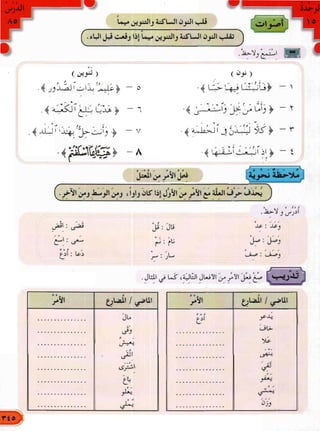 الدرس
٨٥
الوحدة
١٥
أصوات
قلب النون الساكنة والتنوين ميما
تقلب النون الساكنة والتنوين ميماً إذا وقعت قبل الباء.
اِسْتَمِعْ ولاحظ.
( نون )
( تنوين )
١ - ﴿ فَأَنْبَتْنَا فِيهَا حَبًّا ﴾.
٢ - ﴿ وَأَمَّا مَنْ بَخِلَ وَاسْتَغْنَى ﴾.
٣ - ﴿ كَلَّا لَيُنْبَذَنَّ فِي الْحُطَمَةِ ﴾.
٤ - ﴿ إِذِ انْبَعَثَ أَشْقَاهَا ﴾.
٥ - ﴿ عَلِيمٌ بِذَاتِ الصُّدُورِ ﴾.
٦ - ﴿ هَدْيًا بَالِغَ الْكَعْبَةِ ﴾.
٧ - ﴿ وَأَنْتَ حِلٌّ بِهَذَا الْبَلَدِ ﴾.
ملاحظة نحوية
فعل الأمر من المعتل
يُحذف حرف العلة مع الأمر من الأول إذا كان واواً، ومن الوسط ومن الآخر.
أدرس ولاحظ.
وَعَدَ : عِدْ
وَصَلَ : صِلْ
وَصَفَ : صِفْ
قَالَ : قُلْ
نَامَ : نَمْ
سَارَ : سِرْ
قَضَى : اِقْضِ
سَعَى : اِسْعَ
دَعَا : اُدْعُ
تدريب
صغ فعل الأمر من الأفعال التالية، كما في المثال.
الماضي / المضارع
الأمر
الماضي / المضارع
الأمر
يدعو
اُدْعُ
خاف
تلا
ينهى
ألقى
يعفو
يمشي
وزن
مال
وفى
يعيش
اتقى
اشترى
باع
يعلو
٣٤٥